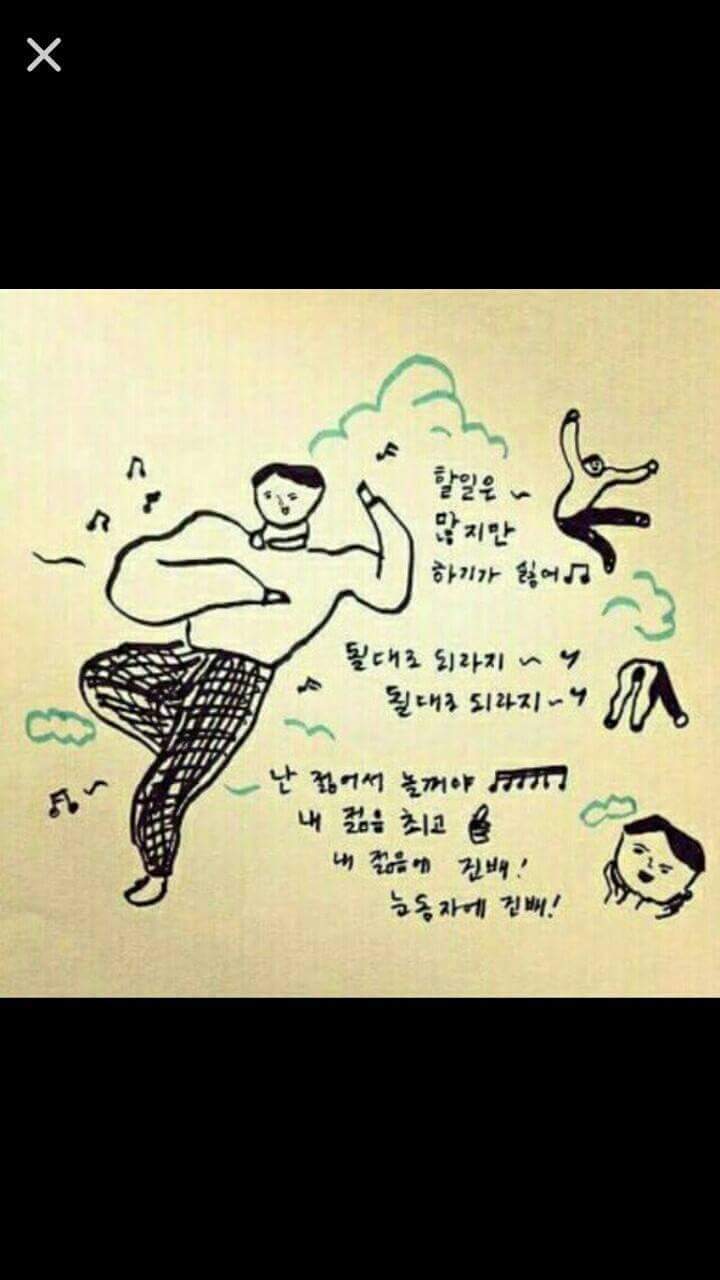 할일은 ~
많지만
하기가 싫어♫
될대로 되라지 ~
될대로 되라지 ~
난 젊어서 놀꺼야
내 젊음 최고
내 젊음에 진배!
눈동자에 진배!